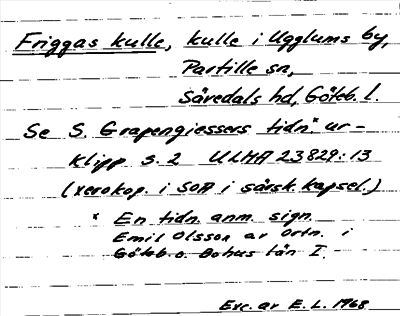 Friggas kulle, kulle i Ugglums by,
Partille sn,
Sävedals hd, Göteb. l.
Se S. Grapengiessers tidn.* ur-
klipp s. 2 ULMA 23829:13
(xerokop. i SOA i särsk. kapsel.)
* En tidn. anm. sign.
Emil Olsson av Ortn. i
Göteb. o. Bohus län I.
Exc. av E. L. 1968